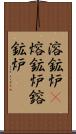 溶鉱炉
熔鉱炉鎔
鉱炉